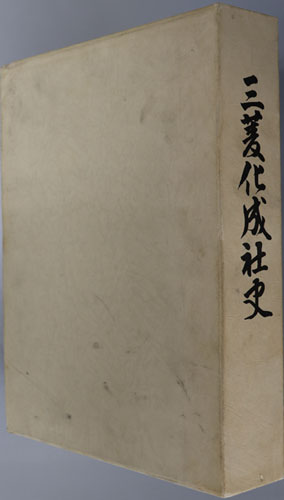 三菱化成社史